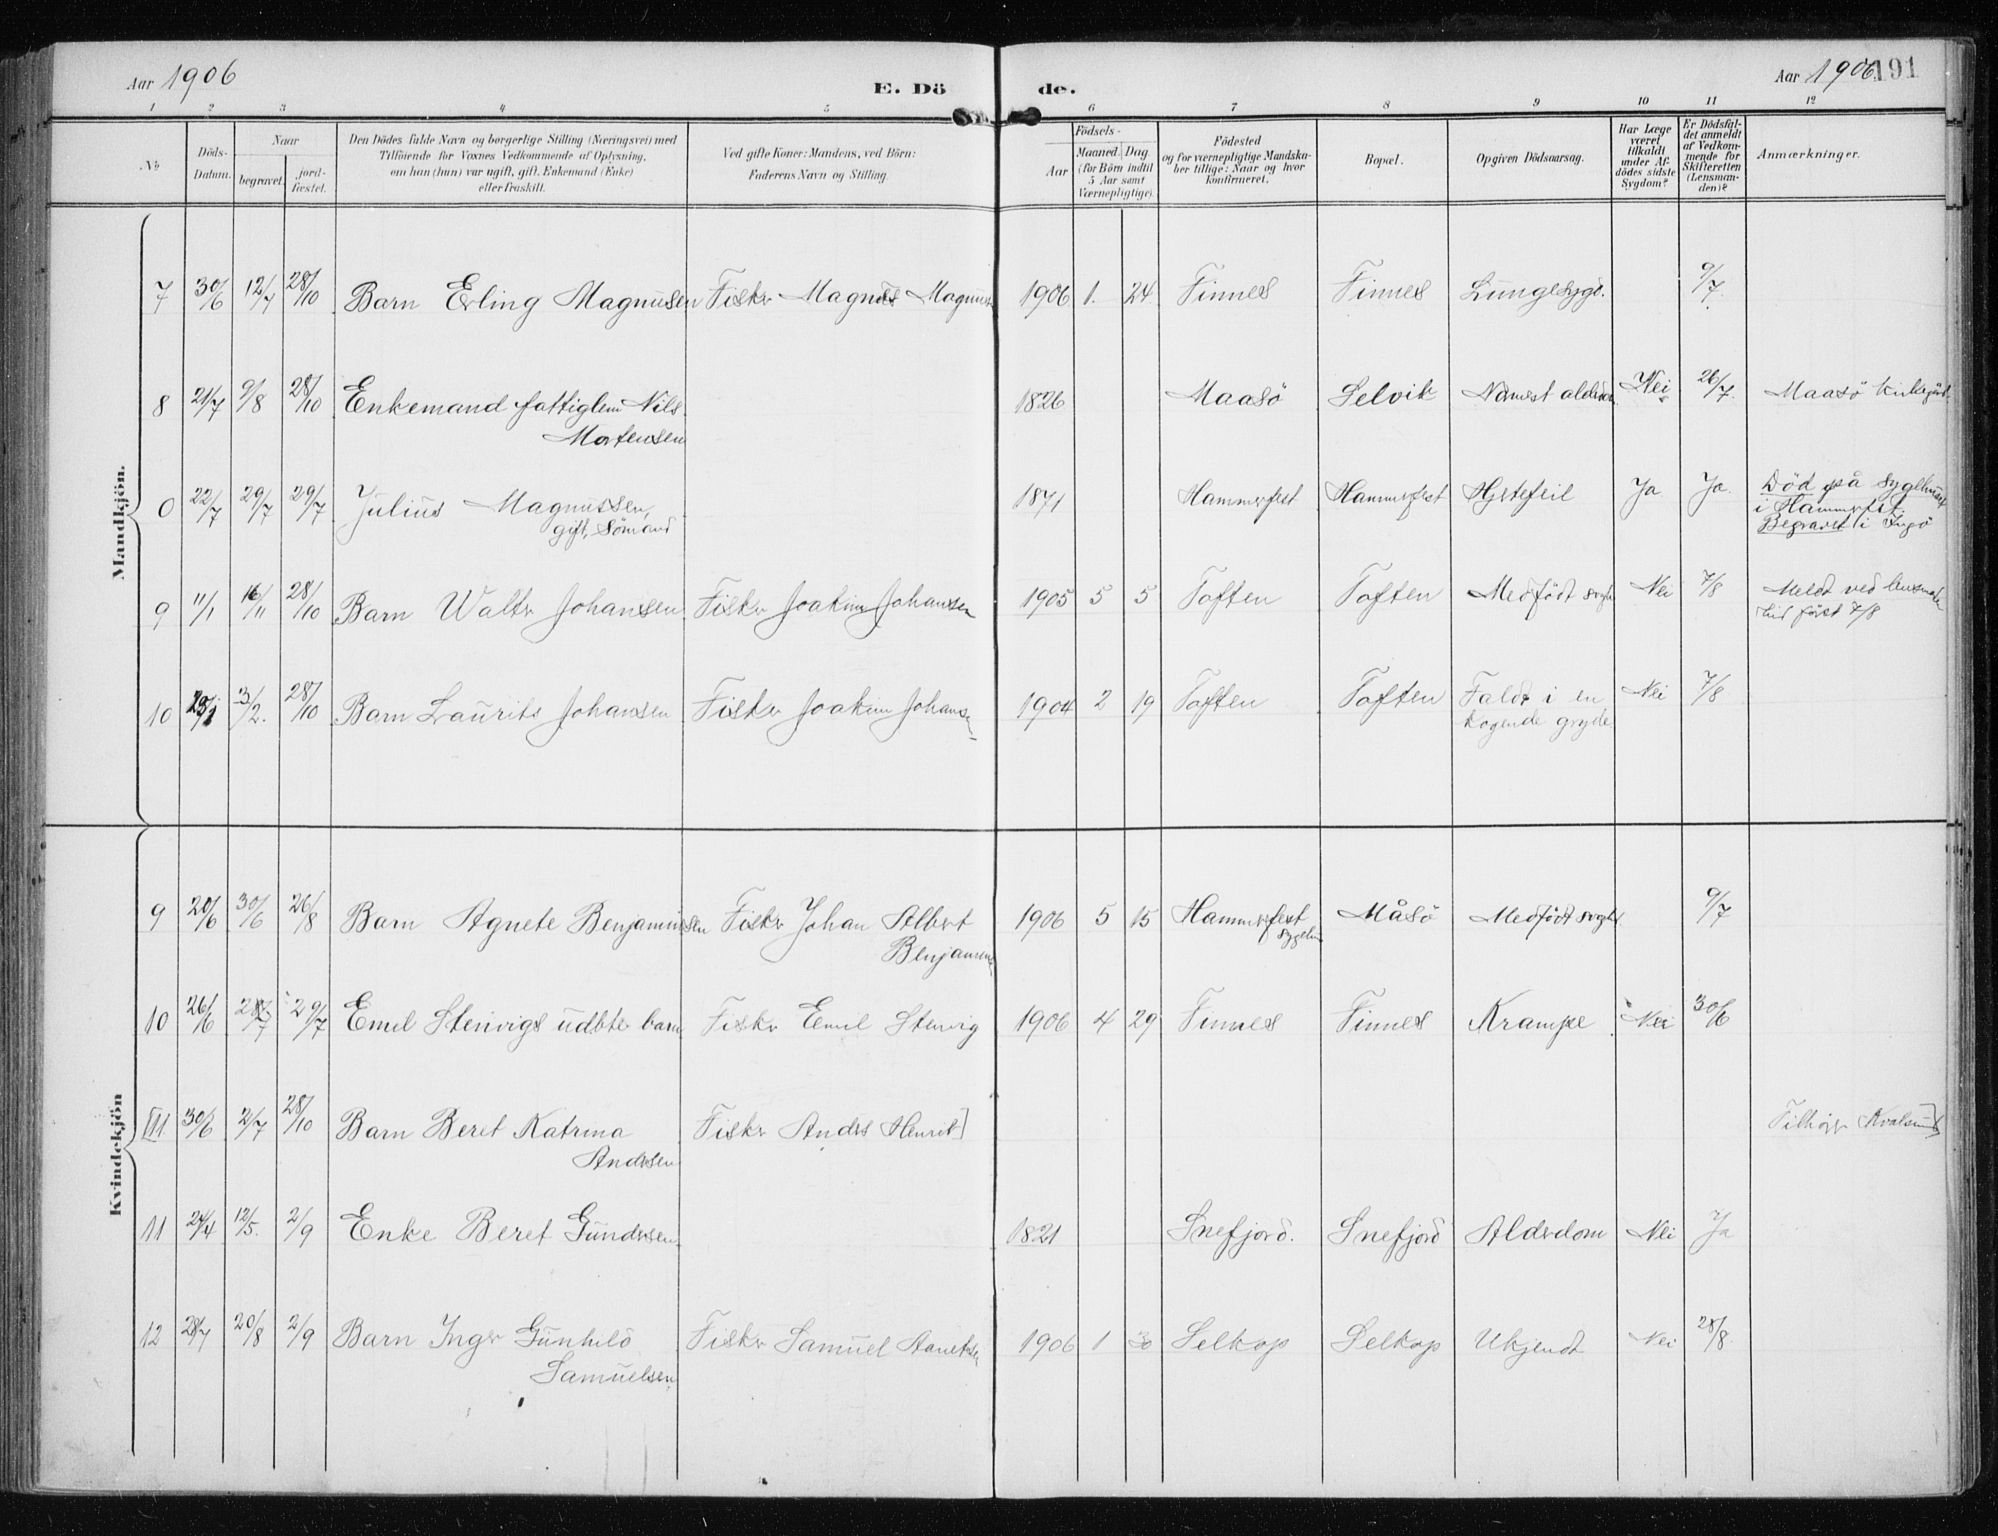 Aar 1906
E. Dö
de.
Aar 1906
191
1 2 3 4 5 6 7 8 9 10 11 12
No
Döds-
Datum.
Naar
begravet.
jord-
fæstet.
Den Dödes fulde Navn og borgerlige Stilling (Næringsvei) med
Tilföiende for Voxnes Vedkommende af Oplysning,
om han (hun) var ugift, gift, Enkemand (Enke)
eller fraskilt.
Ved gifte Koner: Mandens, ved Börn:
Faderens Navn og Stilling.
Födsels-
Aar
Maaned Dag
(for Börn indtil
5 Aar samt
Værnepligtige)
Födested
og for værnepligtige Mandska-
ber tillige: Naar og hvor
konfirmeret.
Bopæl.
Opgiven Dödsaarsag.
Har Læge
været
tilkaldt
under Af-
dödes sidste
Sygdom?
Er Dödsfal-
det anmeldt
af Vedkom-
mende for
Skifteretten
(Lensman-
den)?
Anmærkninger.
Mandkjön.
7 30/6 12/7 28/10 Barn Erling Magnusen Fisker Magnus 1906 1. 24 Finnes Finnes Lungesyge. 9/7.
8 21/7 9/8 28/10 Enkemand fattiglem Nils 1826 Maasö Selvik Nei 26/7. Maasö
Mortensen
0 22/7 29/7 29/7 Julius Magnussen, 1871 Hammerfest Hammerfest Hjertefeil Ja Ja. Död på sygehuset
gift, Sömand
i Hammerfest.
Begravet i Ingö
9 11/1 16/11 28/10 Barn Walter Johansen Fisker Joakim Johansen 1905 5 5 Toften Toften Medfödt Nei 7/8 Meldt ved
först 7/8
10 3/2. 28/10 Barn Laurits Johansen Fisker Joakim Johansen 1904 2 19 Toften Toften Faldt i en Nei 7/8
kogende gryde
Kvindekjön
9 20/6 30/6 26/8 Barn Agnete Benjaminsen Fisker Johan Albert 1906 5 15 Hammerfest Måsö Medfödt 9/7
Benjaminsen
10 26/6 29/7 Emil Stenvigs udöbte barn Fisker Emil Stenvig 1906 4 29 Finnes Finnes Krampe Nei 30/6
[11 30/6 2/7 28/10 Barn Beret Katrina Fisker Anders Henrik] Kvalsund]
Andersen
11 24/4 12/5. 2/9 Enke Beret Gundersen 1821 Snefjord. Snefjord Alderdom Nei Ja
12 28/7 20/8 2/9 Barn Inger Gunhild Fisker Samuel 1906 1 30 Selkop Selkop Ukjendt Nei 28/8.
Samuelsen